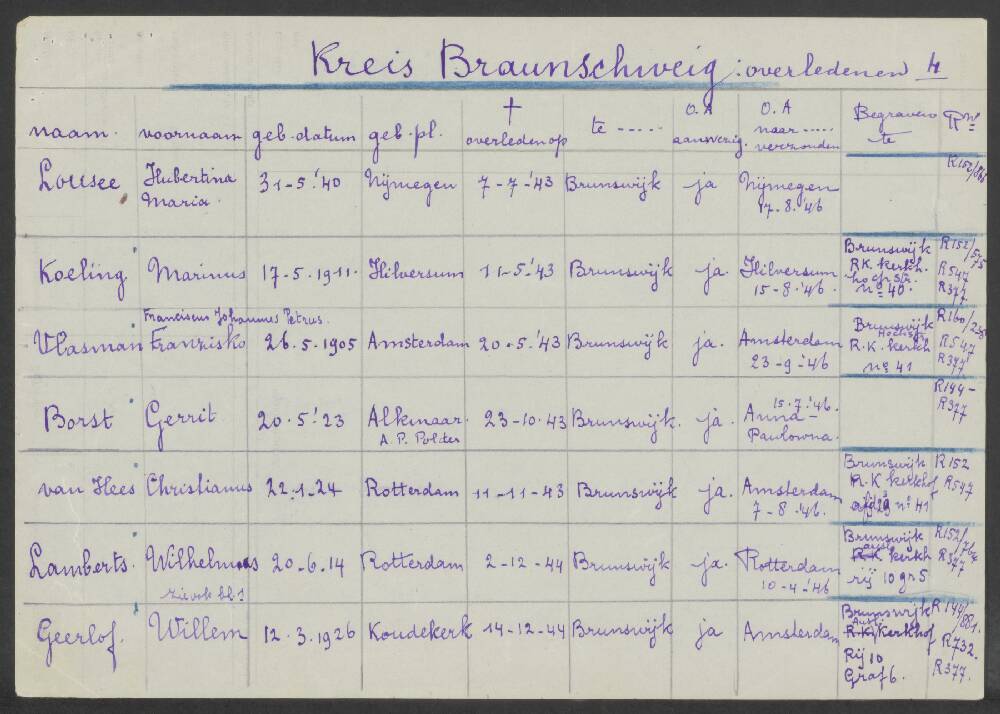 Kreis Braunschweig : overledenen 4
naam. voornaam geb. datum geb. pl. † overleden op te ----- O.A aanwezig. O.A naar ..... verzonden Begraven te Rnº
Lousee Hubertina Maria. 31-5-'40 Nijmegen 7-7-'43 Brunswijk ja Nijmegen 17.8.'46 R152/
Koeling Marinus 17-5.1911. Hilversum 11-5-'43 Brunswijk ja. Hilversum 15-8-'46. Brunswijk R.K. kerkh. nº 40. R152/575 R547 R377
Vlasman Franciscus Johannes Petrus. Franzisko 26.5.1905 Amsterdam 20-5.'43 Brunswijk ja. Amsterdam 23-9-'46 Brunswijk R.K. kerkh nº 41 R160/238 R547 R377
Borst Gerrit 20.5.'23 Alkmaar. A.P. Polder 23-10.43 Brunswijk. ja. 15.7.'46. Anna-Paulowna. R144- R377
van Hees Christianus 22.1-24 Rotterdam 11-11-43 Brunswijk ja. Amsterdam 7-8.'46. Brunswijk R.K kerkhof nº 41 R152 R547
Lamberts. Wilhelmus zie ook bl.1 20-6.14 Rotterdam 2-12-44 Brunswijk ja. Rotterdam 10-4-'46 Brunswijk ausl. R.K kerkh rij 10 gr 5 R152/764 R377
Geerlof. Willem 12.3.1926 Koudekerk 14-12-44 Brunswijk ja Amsterdam Brunswijk Ausl. R.K. Kerkhof Rij 10 Graf 6. R144/881. R732. R377.